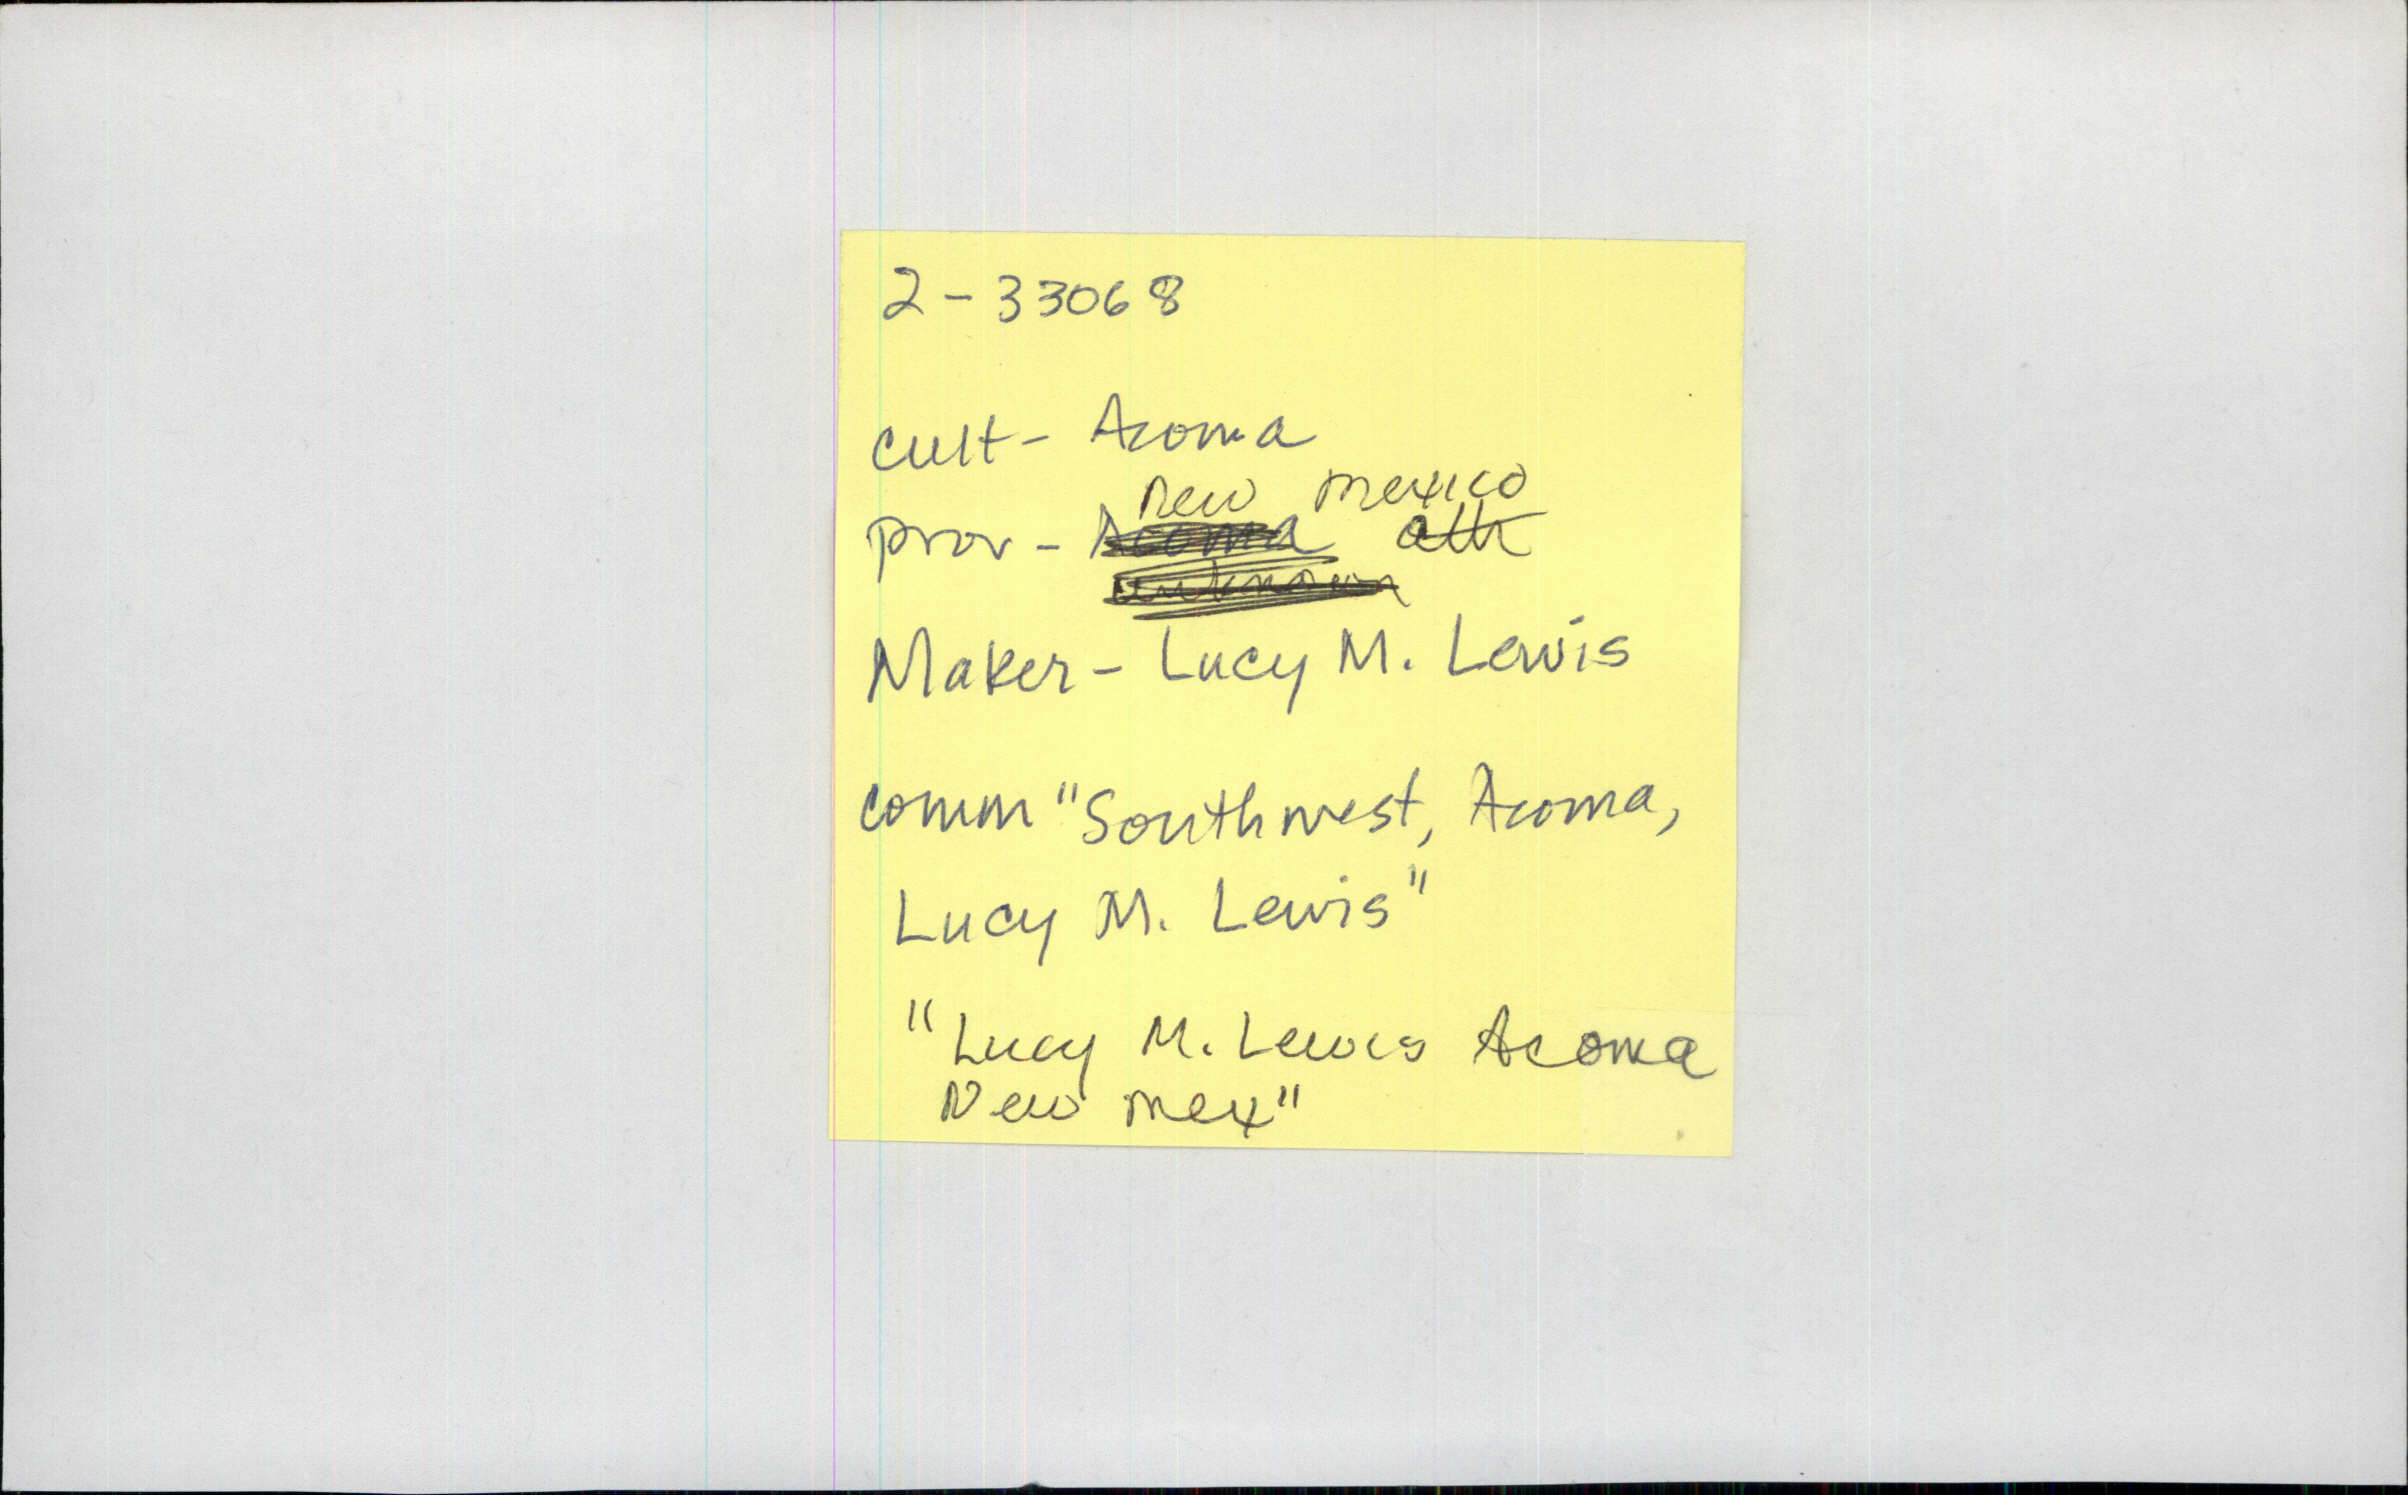 2-33068
cult- Acoma
New Mexico
prov- Acoma attr
unknown
Maker- Lucy M. Lewis
comm "Southwest, Acoma,
Lucy M. Lewis"
"Lucy M. Lewis Acoma
New Mex"